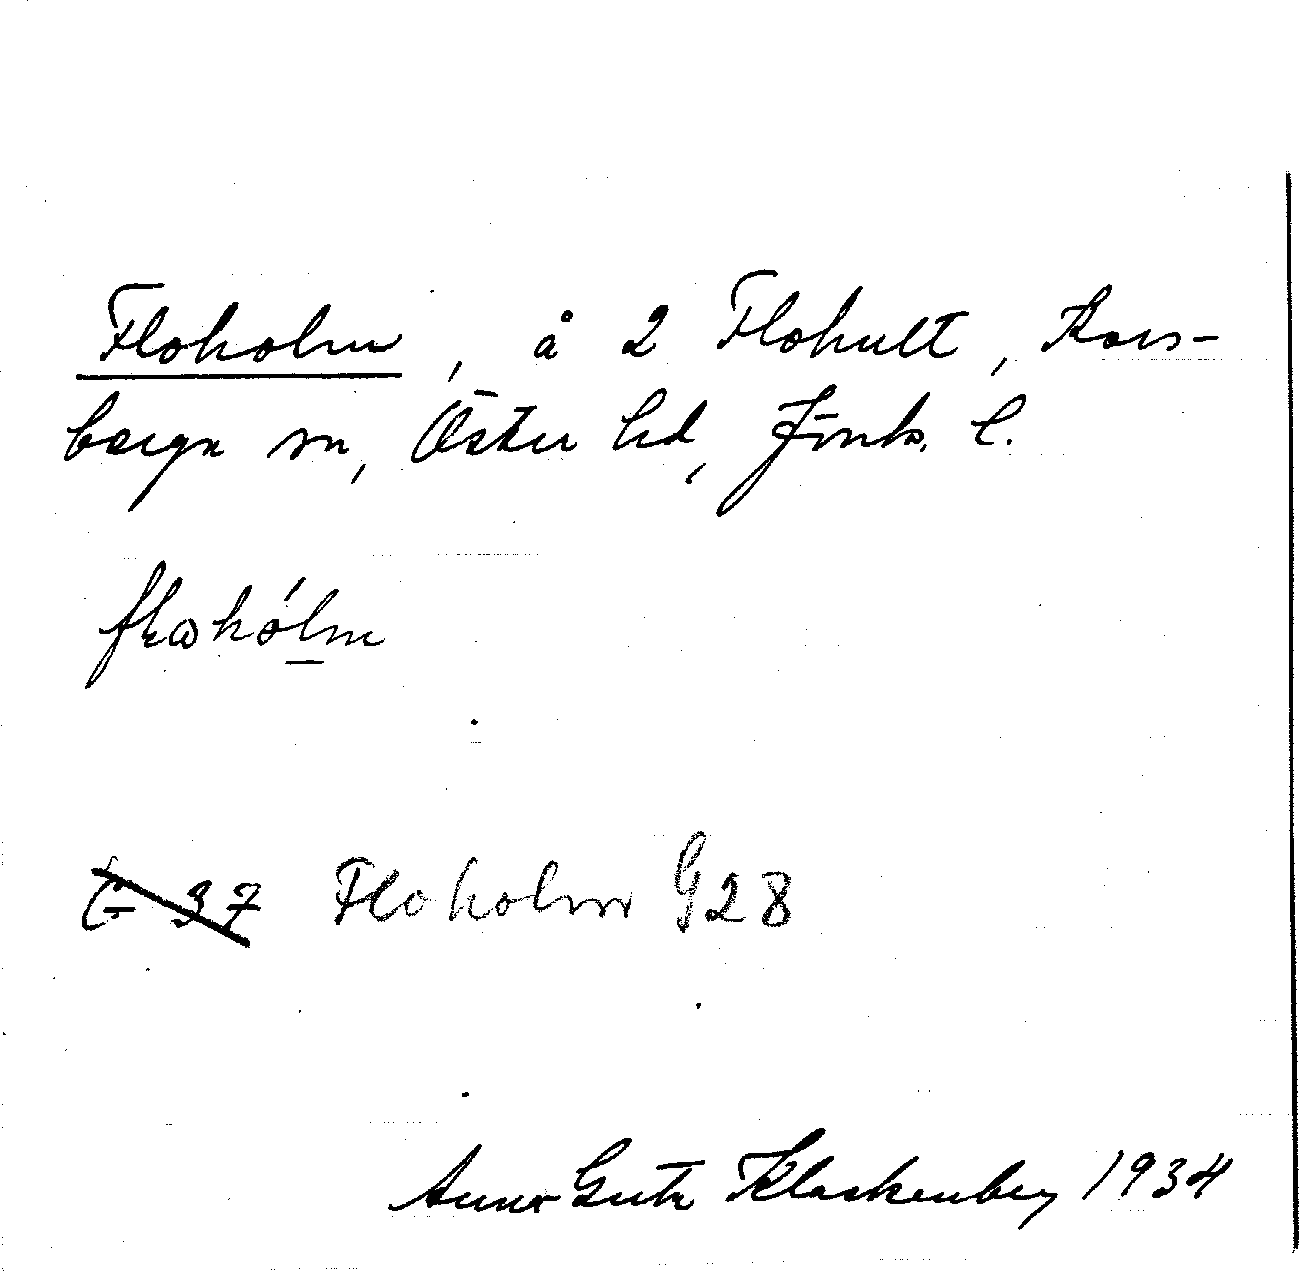 Floholm, å 2 Flohult, Kors-
berga sn, Östra hd, Jönk. l.
flωhólm
G 37 Floholm G28
Anna Greta Klackenberg 1934